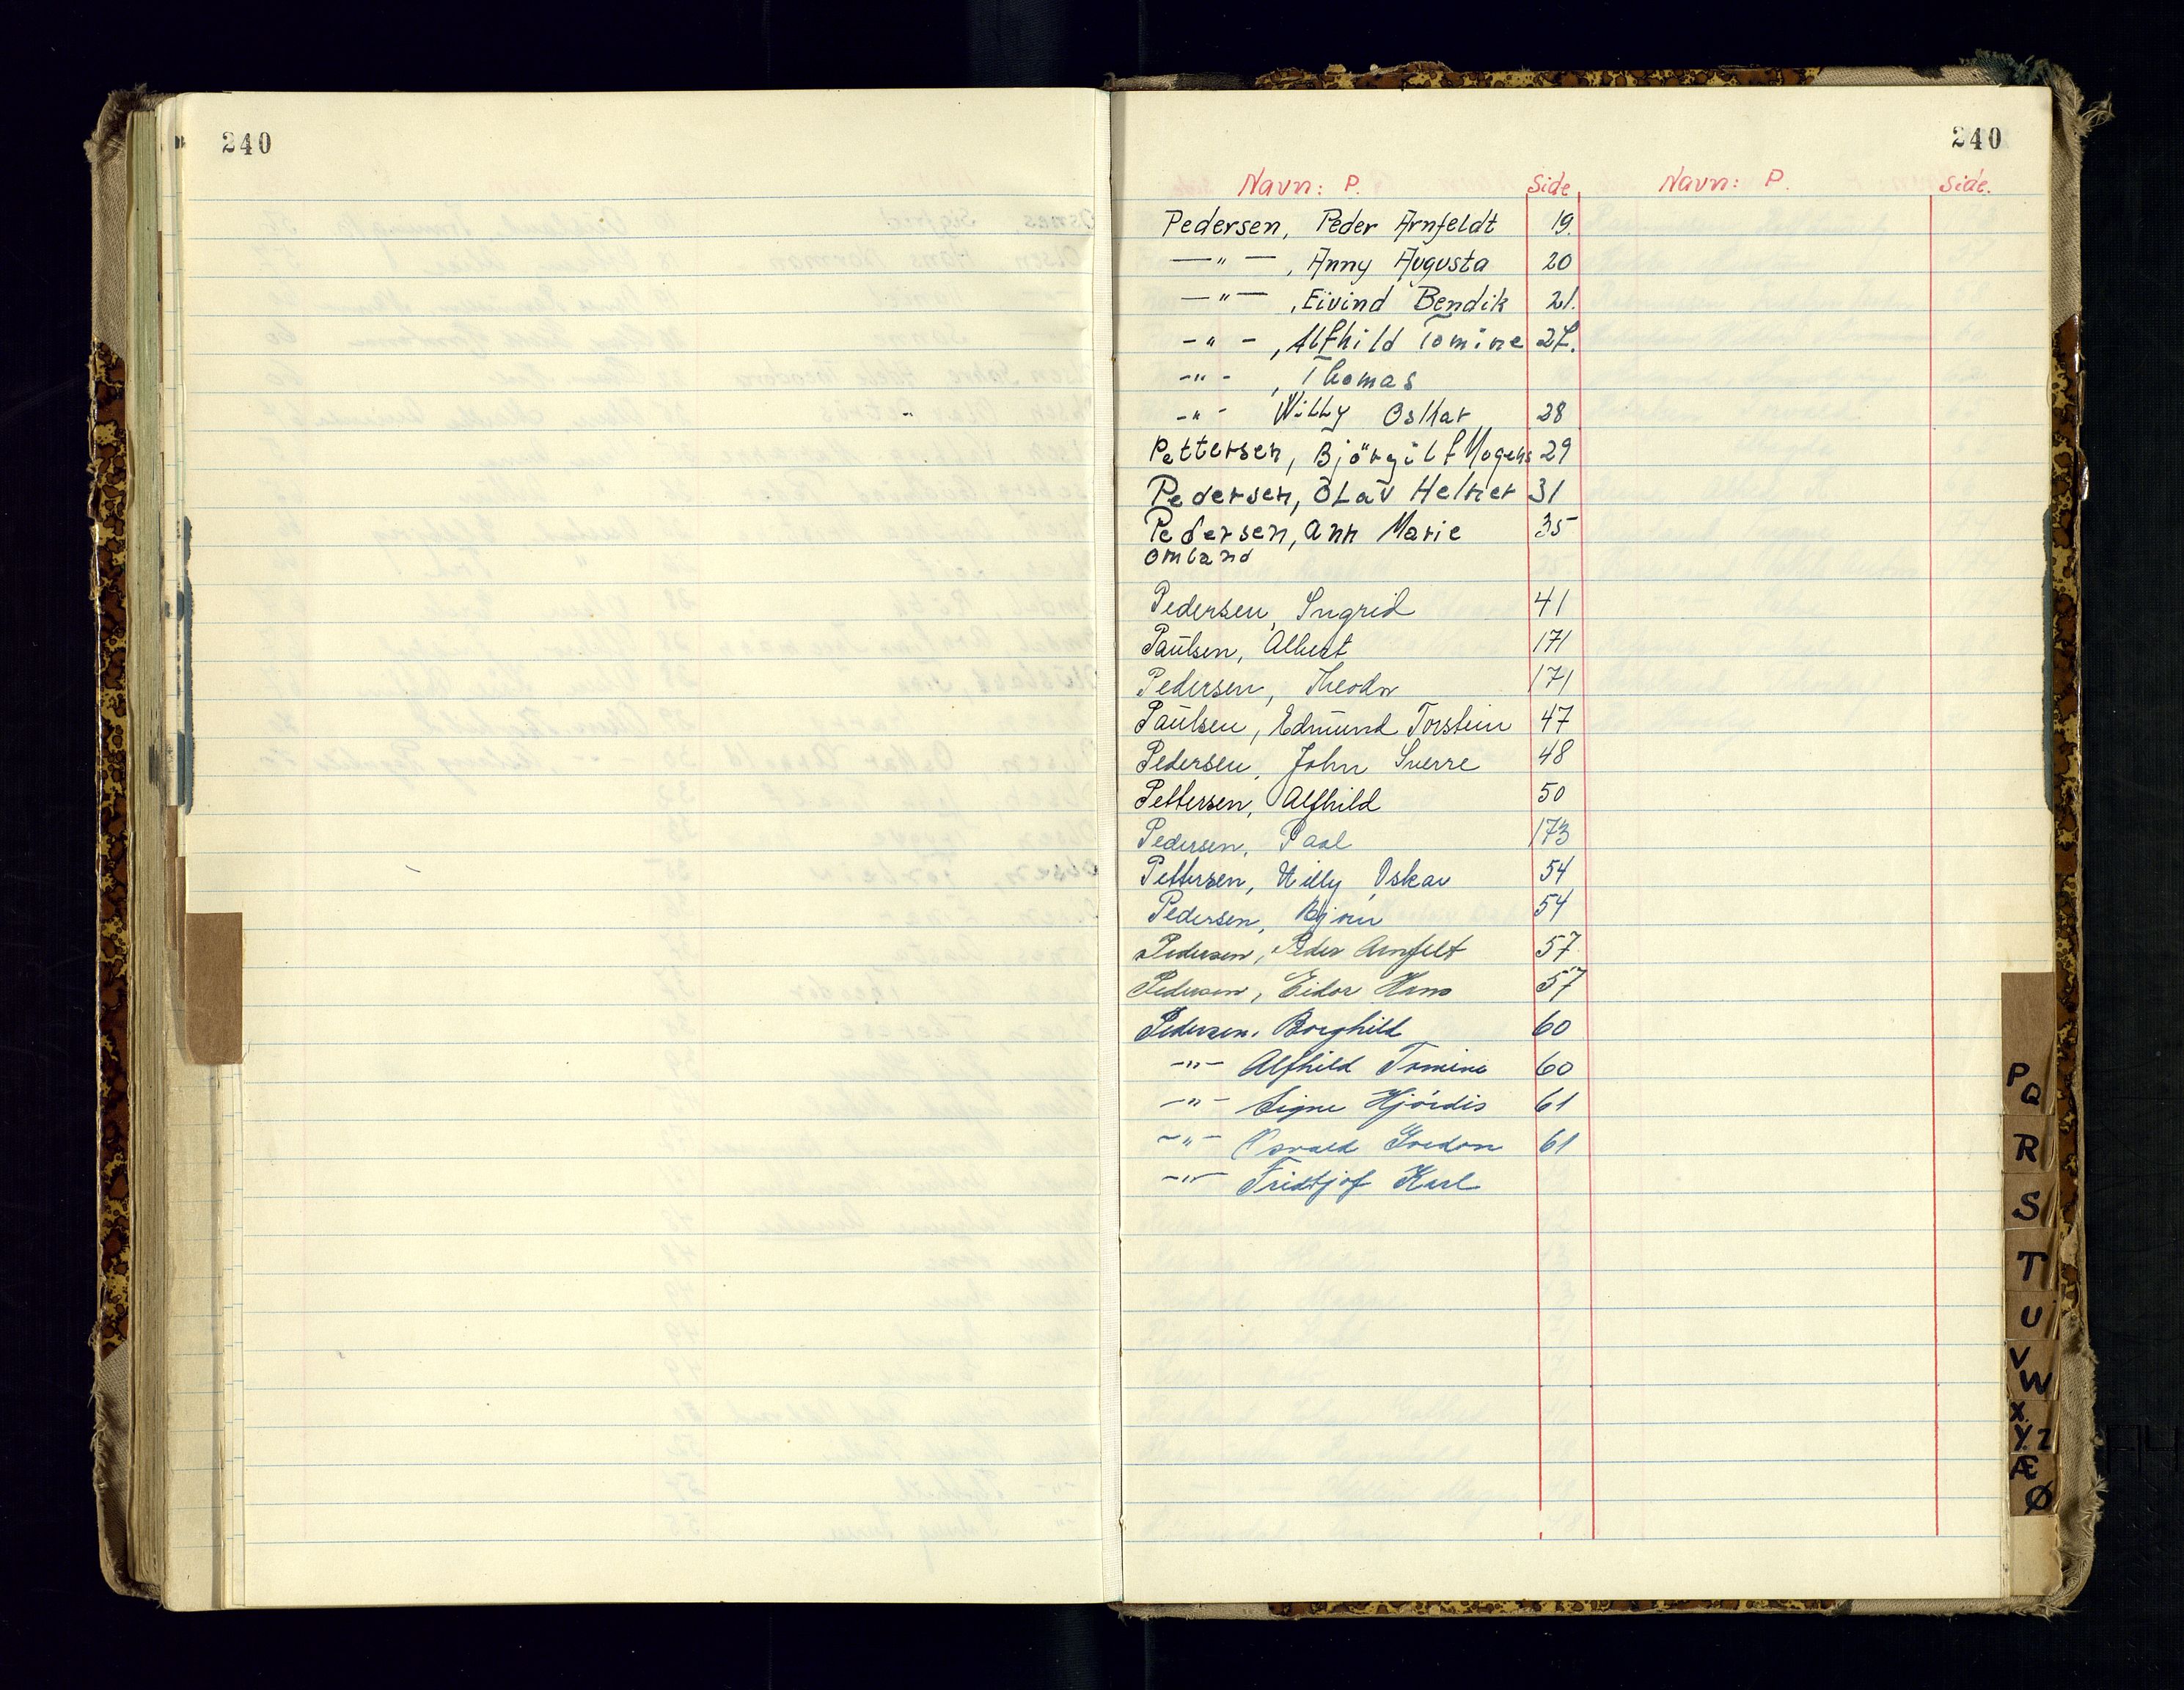 240
240
Navn: P. Side Navn: P. Side.
Pedersen, Peder Arnfeldt 19.
—"—, Anny Augusta 20
—"—, Eivind Bendik 21.
-"-, Alfhild Tomine 27.
-"-, Thomas
-"- Willy Oskar 28
Pettersen, Björgulf Mogens 29
Pedersen, Olav Helner 31
Pedersen, Ann Marie 35
Omland
Pedersen, Ingrid 41
Paulsen, Albert 171
Pedersen, Theodor 171
Paulsen, Edmund Torstein 47
Pedersen, John Sverre 48
Pettersen, Alfhild 50
Pedersen, Paal 173
Pettersen, Willy Oskar 54
Pedersen, Bjørn 54
Pedersen, Peder Arnfelt 57
Pedersen, Eidor Hans 57
Pedersen, Borghild 60
-"- Alfhild Tomine 60
-"- Signe Hjördis 61
-"- Osvald Gordon 61
-"- Fridtjof Karl
P
Q
R
S
T
U
V
W
X
Y Z
Æ
Ø